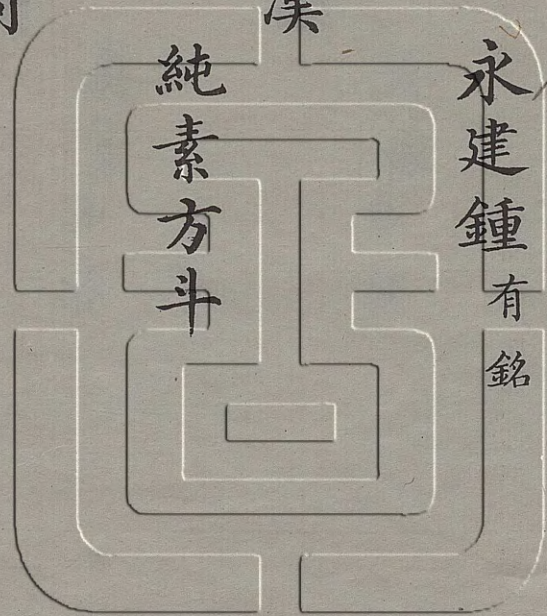 永建鍾有銘
漢
純素方斗